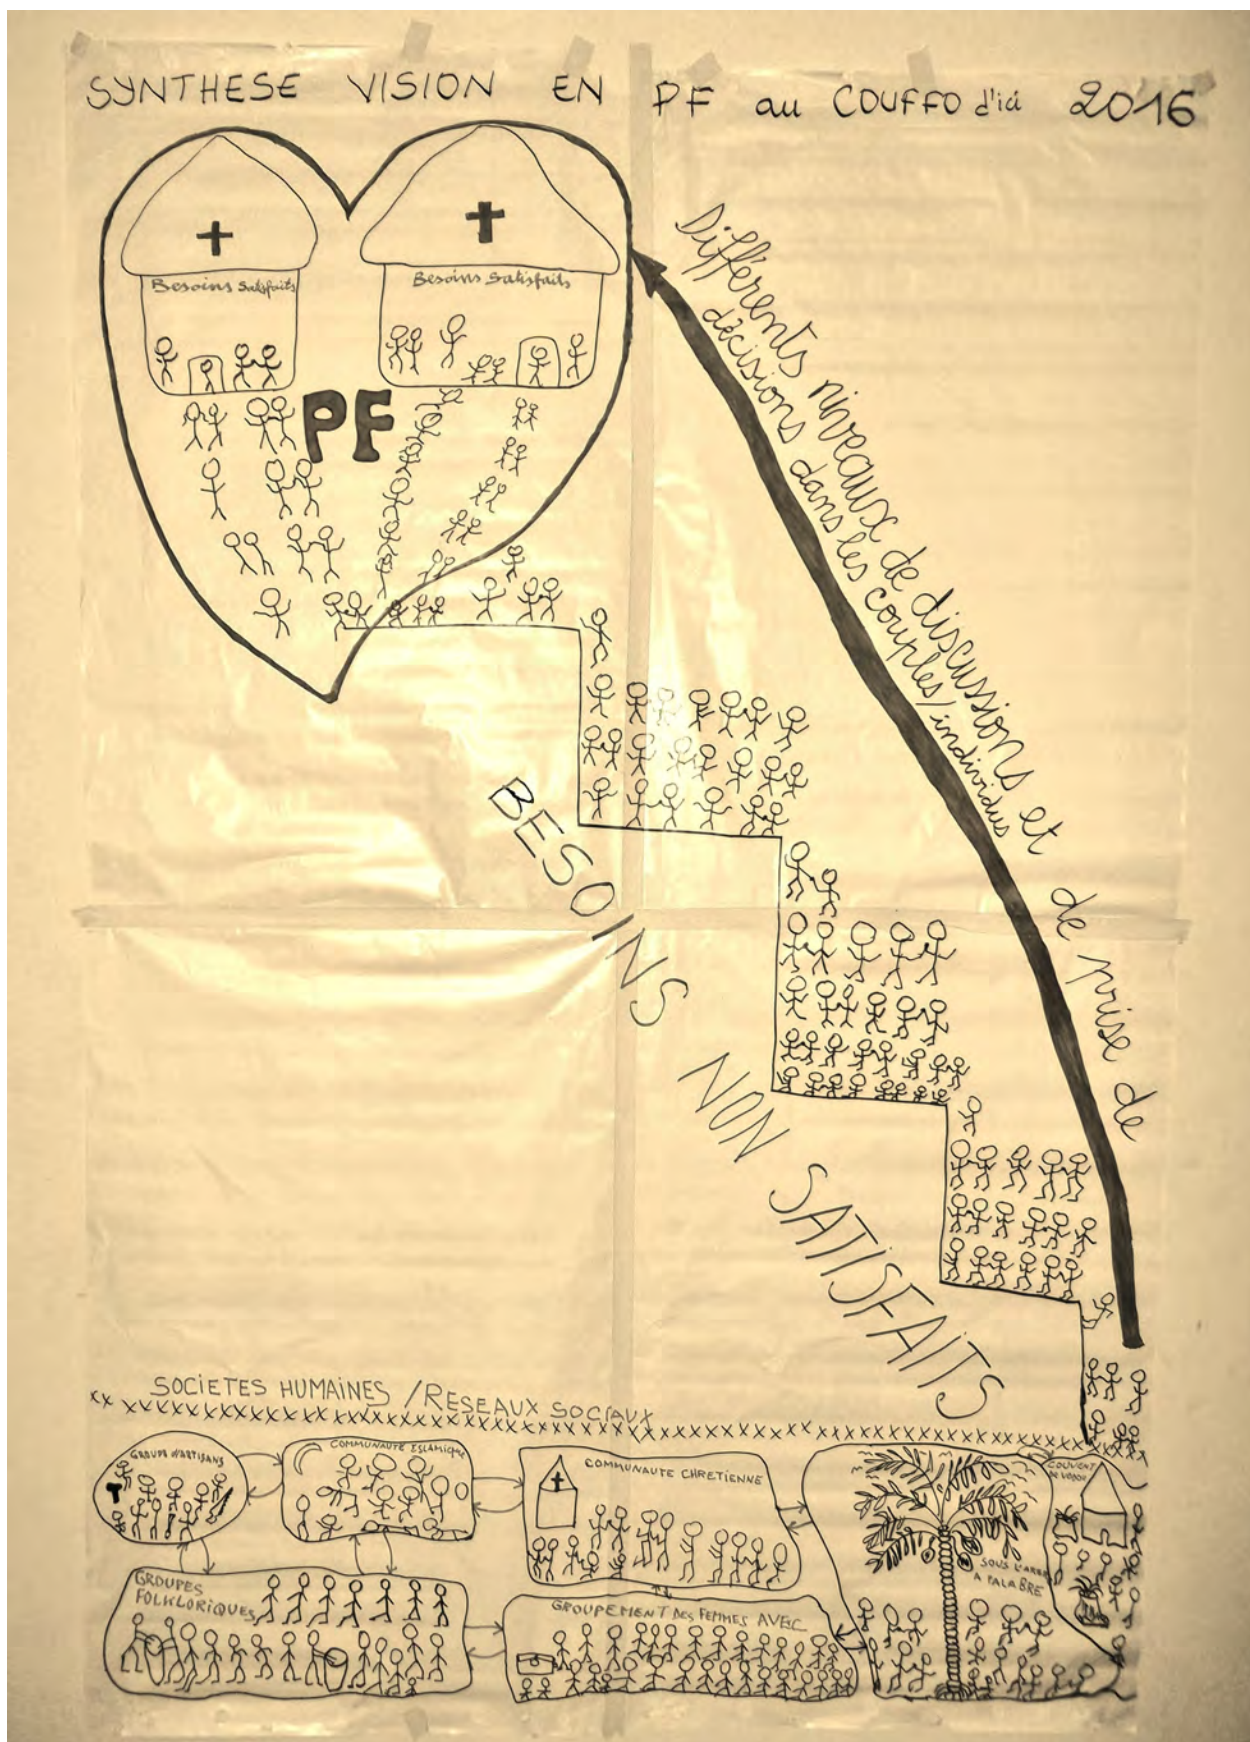 SYNTHESE VISION EN PF au COUFFO d'ici 2016
Besoins Satisfaits
Besoins Satisfaits
PF
Différents niveaux de discussions et de prise de
décisions dans les couples/individus
BESOINS NON SATISFAITS
SOCIETES HUMAINES /RESEAUX SOCIAUX
GROUPE D'ARTISANS
COMMUNAUTE ISLAMIQUE
COMMUNAUTE CHRETIENNE
COUVENT
DE VODOU
SOUS L'ARBRE
A PALABRE
GROUPES
FOLKLORIQUES
GROUPEMENT DES FEMMES AVEC